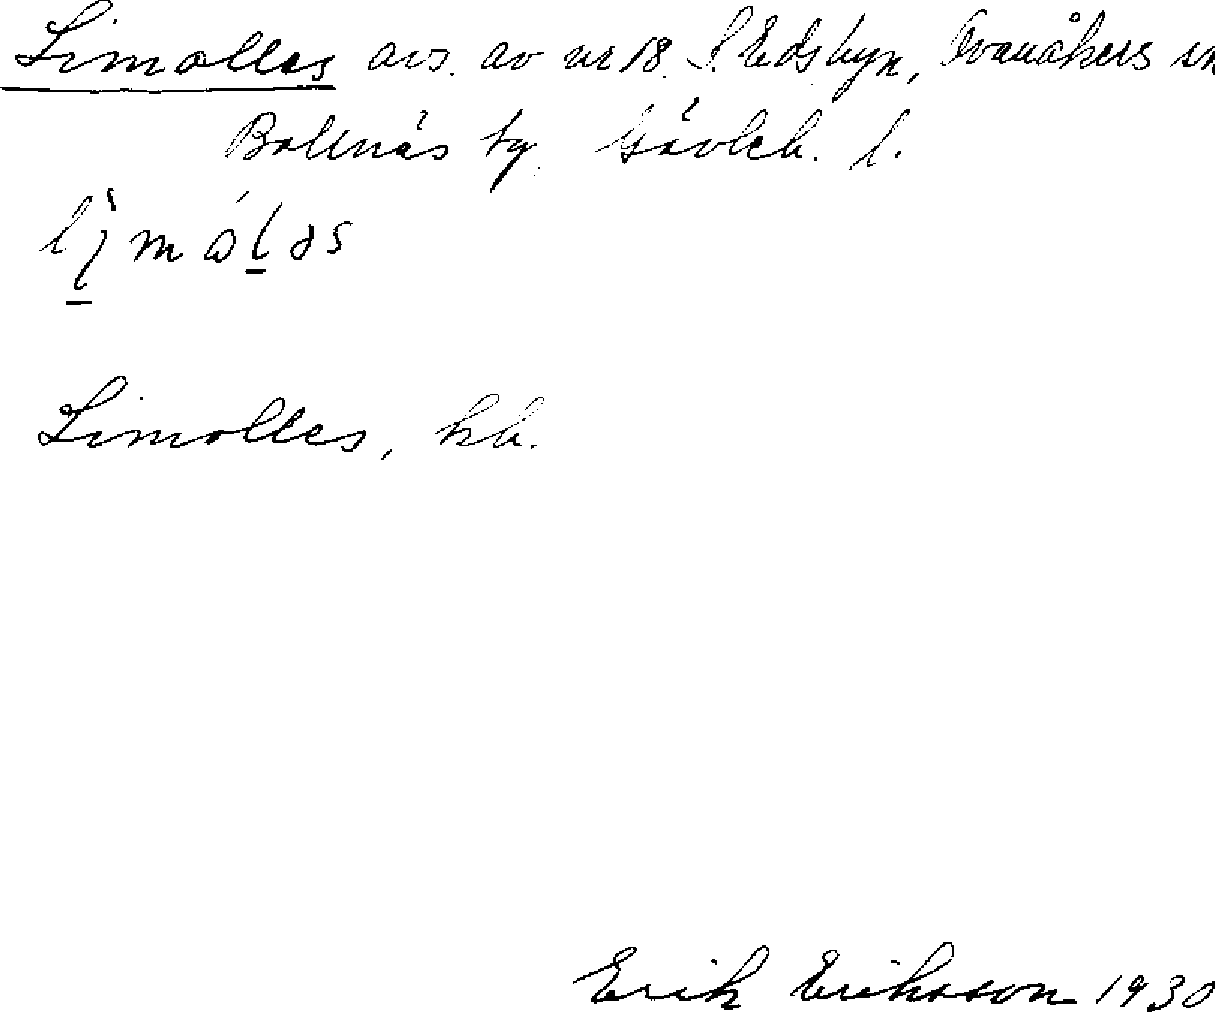 Limolles avs. av nr 18. S. Edsbyn, Ovanåkers sn
Bollnäs tg. Gävleb. l.
Limolles, kb.
Erik Eriksson 1930